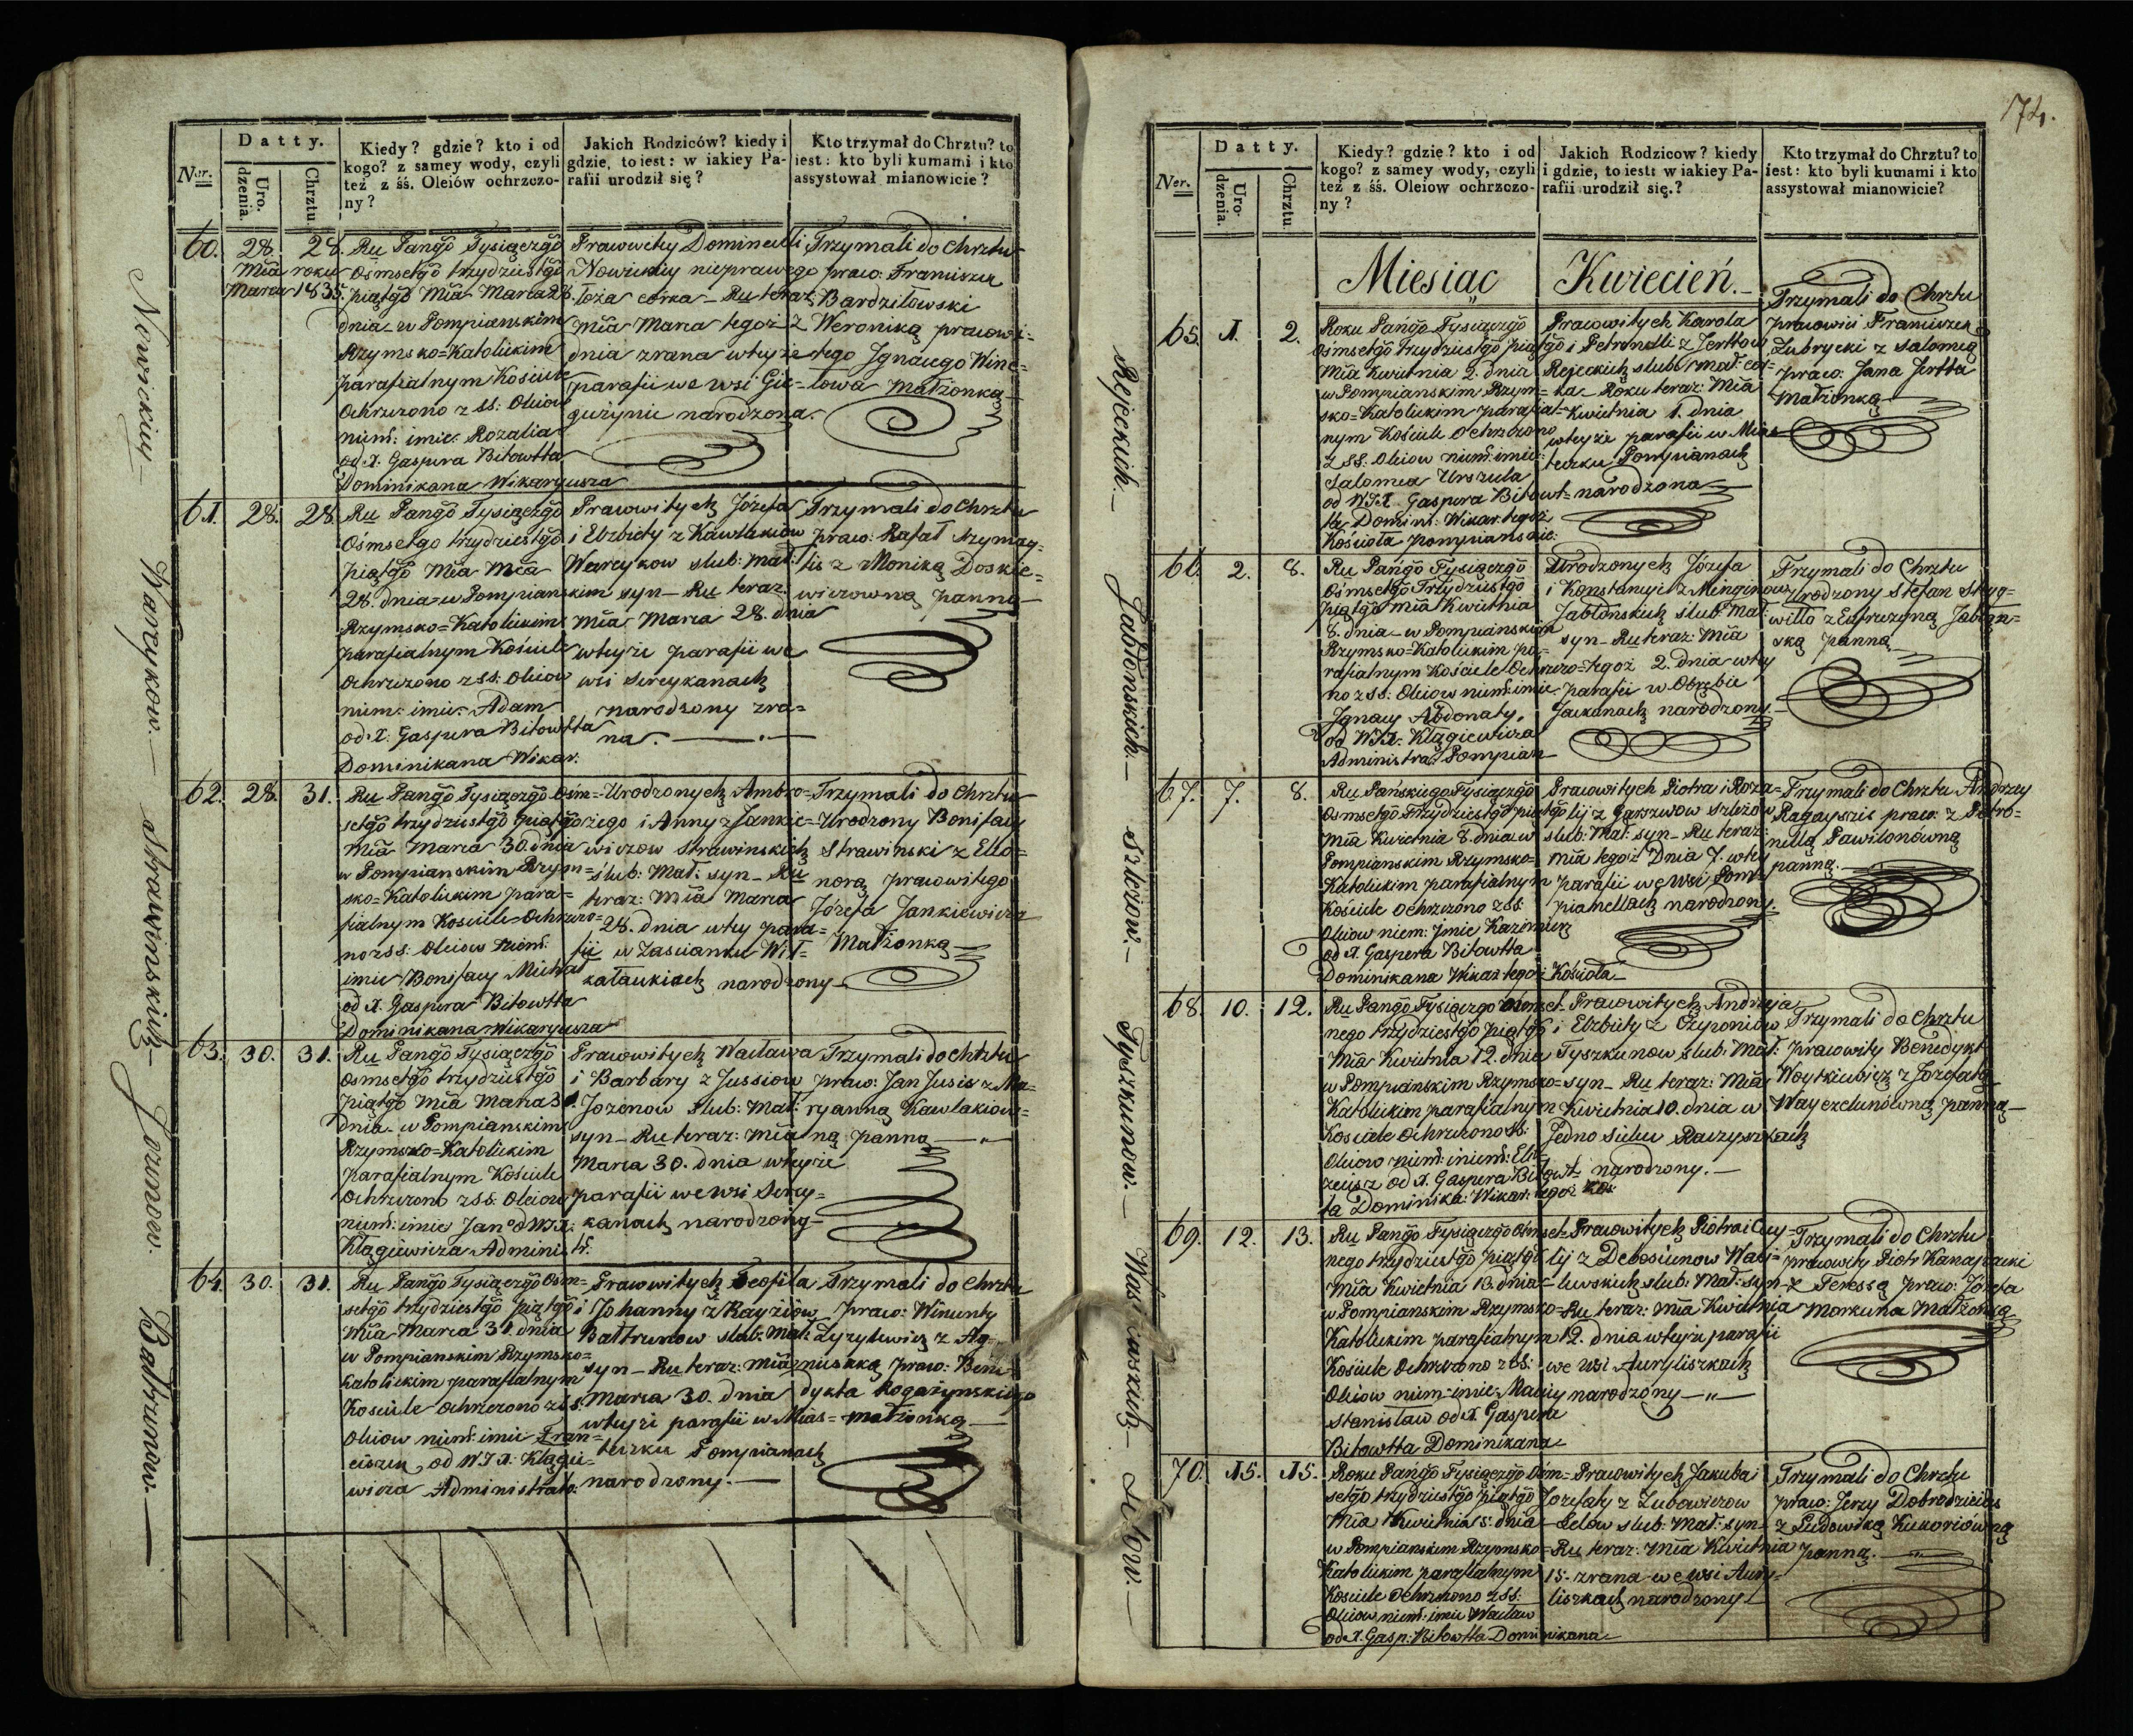 Nowickiey
Wareykow.
Strawinskich
Jozenow.
Bałtrunow.
Ner.
Datty.
Uro.
dzenia.
Chrztu
Kiedy? gdzie? kto i od
kogo? z samey wody, czyli
też z śś. Oleiów ochrzczo-
ny?
Jakich Rodziców? kiedy i
gdzie, to iest: w iakiey Pa-
rafii urodził się?
Kto trzymał do Chrztu? to
iest: kto byli kumami i kto
assystował mianowicie?
60.
28.
Mca
Marca
28.
roku
1835.
Ru Pangō Tysiączgō
Ośmsetgō trzydziestgō
piątgō Mca Marca 28.
dnia w Pompianskim
Rzymsko=Katolickim
parafialnym Kościele
Ochrzczono z SS: Oleiow
niem: imie: Rozalia
od X. Gaspera Bitowtta
Dominikana Wikaryusza
Pracowitey Dominiculi
Nowickiey nieprawego
łoża corka – Ru teraz:
Mca Marca tegoż
dnia zrana w teyże
parafii we wsi Gie-
gużynie narodzona.
Trzymali do Chrztu
praco: Franciszek
Bardziłowski
z Weroniką pracowi-
tego Jgnacego Winc-
łowa Małżonką
61.
28.
28.
Ru Pangō Tysiączgō
Ośmsetgo trzydziestgō
piątgō Mca Mca
28. dnia w Pompianskim
Rzymsko=Katolickim
parafialnym Kościele
Ochrzczono z SS: Oleiow
niem: imie: Adam
od X. Gaspera Bitowtta
Dominikana Wikar:
Pracowitych Józefa
i Elzbiety z Kawlakiow
Wareykow slub: Mał:
syn – Ru teraz:
Mca Marca 28. dnia
w teyże parafii we
wsi Sereykanach
narodzony zra-
na.
Trzymali do Chrztu
praco: Rafał Szymay-
lis z Moniką Doskie-
wiczowną panną
62.
28.
31.
Ru Pangō Tysiączgō Ośm-
setgō trzydziestgō piątgō
Mca Marca 30. dnia
w Pompianskim Rzym-
sko=Katolickim para-
fialnym Kościele Ochrzczo-
no z SS: Oleiow niem:
imie Bonifacy Michał
od X. Gaspera Bitowtta
Dominikana Wikaryusza
Urodzonych Ambro-
żego i Anny z Jankie-
wiczow Strawinskich
ślub: Mał: syn – Ru
teraz: Mca Marca
28. dnia w tey para-
fii w Zascianku Wił-
kałaukiach narodzony
Trzymali do Chrztu
Urodzony Bonifacy
Strawinski z Eleo-
norą pracowitego
Józefa Jankiewicza
Małżonką
63.
30.
31.
Ru Pangō Tysiączgō
Ośmsetgō trzydziestgō
piątgō Mca Marca 31.
dnia w Pompianskim
Rzymsko=Katolickim
parafialnym Kościele
Ochrzczono z SS. Oleiow
niem: imie Jan od WJX:
Klągiewicza Administr.
Pracowitych Wacława
i Barbary z Jussiow
Jozenow slub: Mał:
syn – Ru teraz: Mca
Marca 30. dnia w teyże
parafii we wsi Serey-
kanach narodzony
Trzymali do Chrztu
praco: Jan Jusis z Ma-
ryanną Kawlakiow-
ną panną
64.
30.
31.
Ru Pangō Tysiączgō Ośm-
setgō trzydziestgō piątgō
Mca Marca 31. dnia
w Pompianskim Rzymsko=
katolickim parafialnym
Kościele Ochrzczono z SS:
Oleiow niem: imie Fran-
ciszek od WJX: Klągie-
wicza Administrato:
Pracowitych Teofila
i Johanny z Rayziow
Bałtrunow slub: Mał:
syn – Ru teraz: Mca
Marca 30. dnia
w teyże parafii w Mias-
teczku Pompianach
narodzony.
Trzymali do Chrztu
praco: Wincenty
Zyzylewicz z Ag-
nieszką praco: Bene-
dykta Rogażynskiego
małżonką
174.
Rejeckich.
Jabłońskich.
Szleżow.
Tyszkunow.
Wasilewskich.
Lelow.
Ner.
Datty.
Uro-
dzenia.
Chrztu
Kiedy? gdzie? kto i od
kogo? z samey wody, czyli
też z śś. Oleiow ochrzczo-
ny?
Jakich Rodzicow? kiedy
i gdzie, to iest: w iakiey Pa-
rafii urodził się.?
Kto trzymał do Chrztu? to
iest: kto byli kumami i kto
assystował mianowicie?
Miesiąc Kwiecień.
65.
1.
2.
Roku Pańgo Tysiączgō
Ośmsetgō Trzydziestgō piątgō
Mca Kwietnia 2. dnia
w Pompianskim Rzym-
sko=Katolickim parafial-
nym Kościele Ochrzczono
z SS: Oleiow niem: imie:
Salomea Urszula
od WJX. Gaspera Bitowt-
ta Domini: Wikar: tegoż
Kościoła pompianskie:
Pracowitych Karola
i Petronelli z Jerttow
Rejeckich slub: mał: cor-
ka – Roku teraz: Mca
Kwietnia 1. dnia
w teyże parafii w Mias-
teczku Pompianach
narodzona
Trzymali do Chrztu
pracowici Franciszek
Zubrycki z Salomeą
praco: Jana Jertta
Małżonką
66.
2.
8.
Ru Pańgō Tysiączgō
Ośmsetgō Trzydziestgō
piątgō Mca Kwietnia
8. dnia w Pompianskim
Rzymsko=Katolickim pa-
rafialnym Kościele Ochrzczo-
no z SS: Oleiow niem: imie
Jgnacy Abdonaty,
od WJX: Klągiewicza
Administra: Pompian
Urodzonych Józefa
i Konstancyi z Minginow
Jabłońskich ślub: Mał:
syn – Ru teraz: Mca
tegoż 2. dnia w tey
parafii w Obrębie
Jackanach narodzony.
Trzymali do Chrztu
Urodzony Stefan Stryg-
willo z Eufrozyną Jabłoń-
ską panną
67.
7.
8.
Ru Pańskiego Tysiączgō
Ośmsetgō Trzydziestgō piątgō
Mca Kwietnia 8. dnia w
Pompianskim Rzymsko=
Katolickim parafialnym
Kościele Ochrzczono z SS
Oleiow niem: Jmie Kazimierz
od X. Gaspera Bitowtta
Dominikana Wikar: tegoż Kościoła
Pracowitych Piotra i Roza-
lij z Garszwow Szleżow
slub: Mał: syn – Ru teraz:
Mca tegoż Dnia 7. w tey
parafii we Wsi Pom-
pianellach narodzony.
Trzymali do Chrztu Andrzey
Ragayszis praco: z Petro-
nellą Pawilonówną
panną.
68.
10.
12.
Ru Pangō Tysiączgō Ośmset-
nego trzydziestgō piątgō
Mca Kwietnia 12. dnia
w Pompianskim Rzymsko=
Katolickim parafialnym
Kosciele Ochrzczono SS:
Oleiow niem: imiem: Eli-
zeusz od X. Gaspera Bitowt-
ta Dominika: Wikar: tegoż Koś:
Pracowitych Andrzeja
i Elzbiety z Czyponiów
Tyszkunow slub: Mał:
syn – Ru teraz: Mca
Kwietnia 10. dnia w
Jedno Sielu Raczyszkach
narodzony.
Trzymali do Chrztu
pracowity Benedykt
Woytkiewicz z Jozefatą
Wayczelunówną panną
69.
12.
13.
Ru Pangō Tysiączgō Ośmset-
nego trzydziestgō piątgō
Mca Kwietnia 13. dnia
w Pompianskim Rzymsko=
Katolickim parafialnym
Kościele Ochrzczono z SS:
Oleiow niem: imie: Maciey
Stanisław od X. Gaspera
Bitowtta Dominikana
Pracowitych Piotra i Cecy-
lij z Debesiunow Wasi-
lewskich slub: Mał: syn
Ru teraz: Mca Kwietnia
12. dnia w teyże parafii
we wsi Auryliszkach
narodzony
Trzymali do Chrztu
pracowity Piotr Kanapacki
z Teressą praco: Józefa
Markuna Małżonką
70.
15.
15.
Roku Pańgō Tysiączgō Ośm-
setgō trzydziestgō piątgō
Mca Kwietnia 15. dnia
w Pompianskim Rzymsko=
Katolickim parafialnym
Kosciele Ochrzczono z SS:
Oleiow niem: imie Wacław
od X. Gasp: Bitowtta Dominikana
Pracowitych Jakuba i
Jozefaty z Zubowiczow
Lelow slub: Mał: syn
Ru teraz: Mca Kwietnia
15. zrana we wsi Aury-
liszkach narodzony
Trzymali do Chrztu
praco: Jerzy Dobrodzieias
z Ludowiką Kukoriówną
panną.